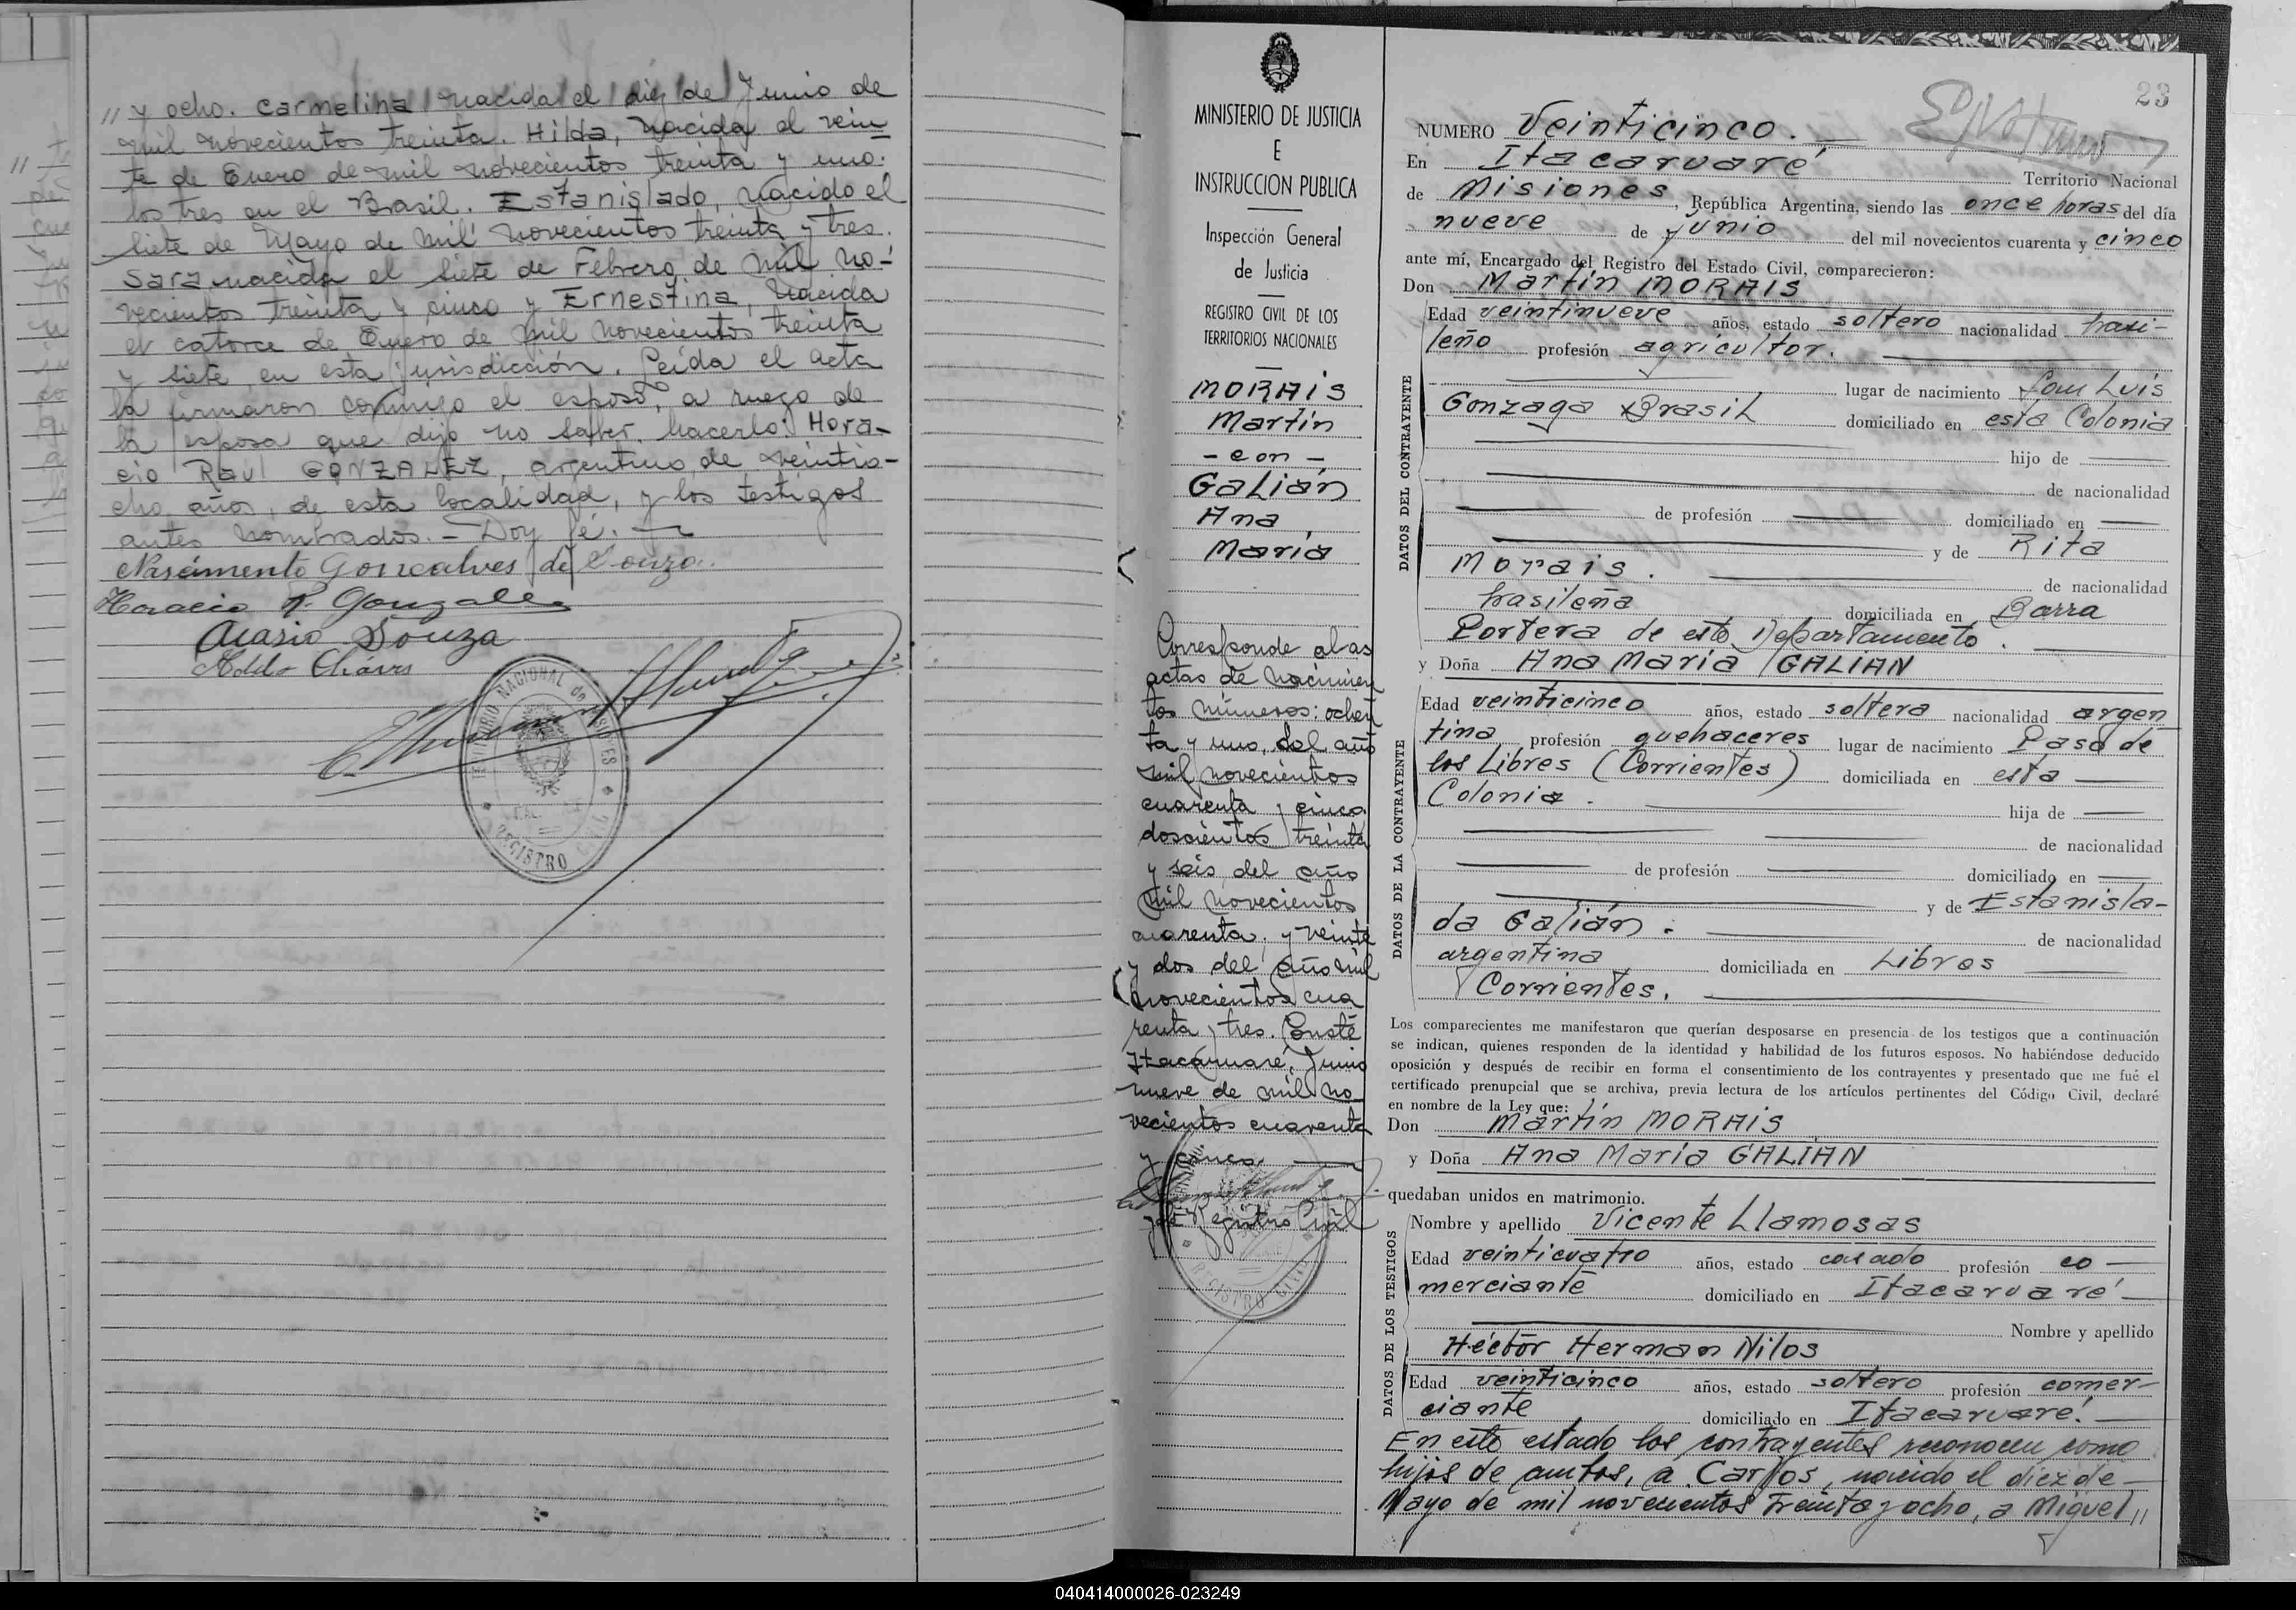 // y ocho. Carmelina nacida el diez de Junio de
mil novecientos treinta. Hilda, nacida el vein
te de Enero de mil novecientos treinta y uno.
los tres en el Brasil. Estanislado, nacido el
siete de Mayo de mil novecientos treinta y tres.
Sara nacida el siete de Febrero de mil no-
vecientos treinta y cinco y Ernestina, nacida
el catorce de Enero de mil novecientos treinta
y siete en esta jurisdicción. Leída el acta
la firmaron conmigo el esposo, a ruego de
la esposa que dijo no saber hacerlo: Hora-
cio Raul GONZALEZ, argentino de veintio-
cho años, de esta localidad, y los testigos
antes nombrados. - Doy fé.
Nascimento Goncalves de Souza
Horacio R. Gonzalez
Acasio Souza
Aldo Cháves
TERRITORIO NACIONAL de MISIONES
REGISTRO CIVIL
MINISTERIO DE JUSTICIA
E
INSTRUCCION PUBLICA
Inspección General
de Justicia
REGISTRO CIVIL DE LOS
TERRITORIOS NACIONALES
MORAIS
Martín
- con -
GALIAN
Ana
María
Corresponde a las
actas de nacimien
tos números: ochen
ta y uno, del año
mil novecientos
cuarenta y cinco.
doscientos treinta
y seis del año
mil novecientos
cuarenta. y veinte
y dos del año mil
novecientos cua
renta y tres. Conste
Itacaruaré, Junio
nueve de mil no
vecientos cuarenta
y cinco.
Registro Civil
REGISTRO CIVIL
23
NUMERO Veinticinco.
En Itacaruaré Territorio Nacional
de Misiones, República Argentina, siendo las once horas del día
nueve de Junio del mil novecientos cuarenta y cinco
ante mí, Encargado del Registro del Estado Civil, comparecieron:
Don Martín MORAIS
DATOS DEL CONTRAYENTE
Edad veintinueve años, estado soltero nacionalidad brasi-
leño profesión agricultor.
lugar de nacimiento San Luis
Gonzaga Brasil domiciliado en esta Colonia
hijo de
de nacionalidad
de profesión domiciliado en
y de Rita
Morais. de nacionalidad
brasileña domiciliada en Barra
Portera de este Departamento.
y Doña Ana María GALIAN
DATOS DE LA CONTRAYENTE
Edad veinticinco años, estado soltera nacionalidad argen
tina profesión quehaceres lugar de nacimiento Paso de
los Libres (Corrientes) domiciliada en esta
Colonia. hija de
de nacionalidad
de profesión domiciliado en
y de Estanisla-
da Galián. de nacionalidad
argentina domiciliada en Libres
Corrientes.
Los comparecientes me manifestaron que querían desposarse en presencia de los testigos que a continuación
se indican, quienes responden de la identidad y habilidad de los futuros esposos. No habiéndose deducido
oposición y después de recibir en forma el consentimiento de los contrayentes y presentado que me fué el
certificado prenupcial que se archiva, previa lectura de los artículos pertinentes del Código Civil, declaré
en nombre de la Ley que:
Don Martín MORAIS
y Doña Ana María GALIAN
quedaban unidos en matrimonio.
DATOS DE LOS TESTIGOS
Nombre y apellido Vicente Llamosas
Edad veinticuatro años, estado casado profesión co
merciante domiciliado en Itacaruaré
Nombre y apellido
Héctor Herman Nilos
Edad veinticinco años, estado soltero profesión comer-
ciante domiciliado en Itacaruaré.
En este estado los contrayentes reconocen como
hijos de ambos, a Carlos, nacido el diez de
Mayo de mil novecientos treinta y ocho, a Miguel //
040414000026-023249